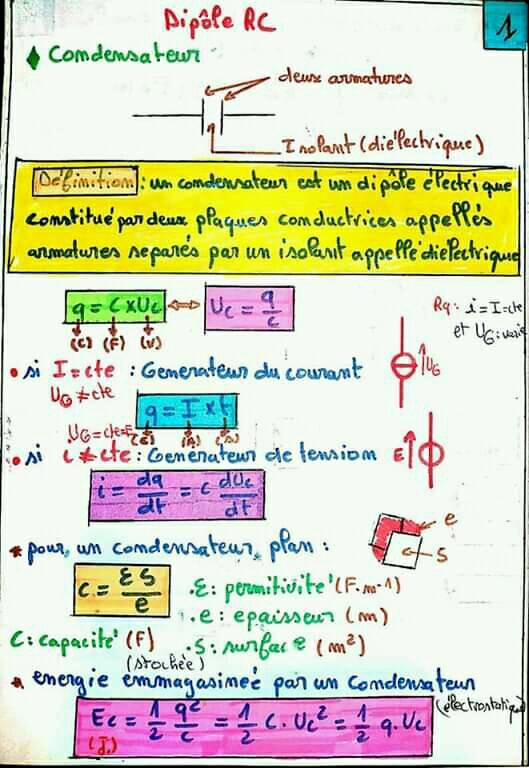 Dipôle RC
1
Condensateur
deux armatures
Isolant (diélectrique)
Définition : un condensateur est un dipôle électrique
constitué par deux plaques conductrices appellés
armatures separés par un isolant appellé dielectrique
q = C x Uc ⇔ Uc = q/c
(C) (F) (V)
Rq: i = I = cte
et UG: varie
• si I = cte : Generateur du courant
UG ≠ cte
UG
q = I x t
(C) (A) (s)
UG = cte = E
• si i ≠ cte : Generateur de tension
E
i = dq/dt = c dUc/dt
* pour un condensateur plan :
e
S
C = εS/e
• ε: permitivité (F.m-1)
• e: epaisseur (m)
C: capacité (F)
• S: surface (m²)
(stochée)
* energie emmagasineé par un condensateur
(électrostatique)
Ec = 1/2 q²/c = 1/2 C . Uc² = 1/2 q . Uc
(J)